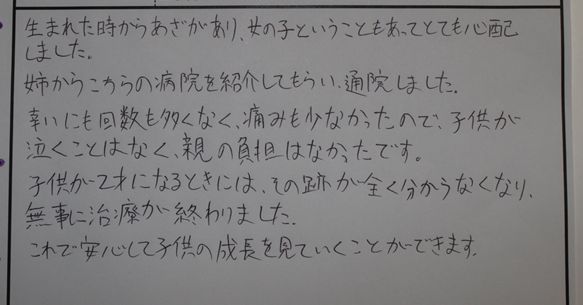 生まれた時からあざがあり、女の子ということもあってとても心配
しました。
姉からこちらの病院を紹介してもらい、通院しました。
幸いにも回数も多くなく、痛みも少なかったので、子供が
泣くことはなく、親の負担はなかったです。
子供が2才になるときには、その跡が全く分からなくなり、
無事に治療が終わりました。
これで安心して子供の成長を見ていくことができます。